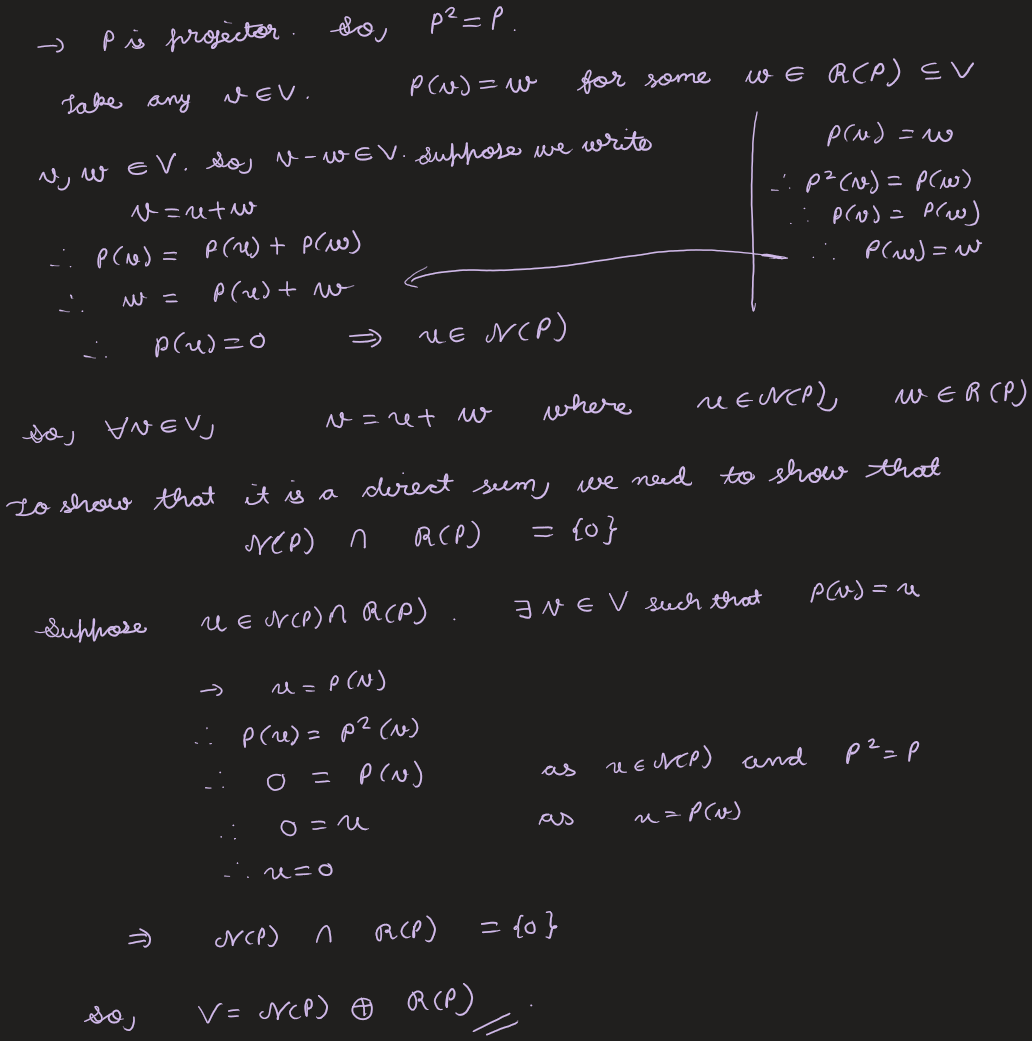 → P is projector. So, P² = P.
Take any v ∈ V. P(v) = w for some w ∈ R(P) ⊆ V
v, w ∈ V. So, v - w ∈ V. Suppose we write
v = u + w
∴ P(v) = P(u) + P(w)
∴ w = P(u) + w
∴ P(u) = 0 ⇒ u ∈ N(P)
P(v) = w
∴ P²(v) = P(w)
∴ P(v) = P(w)
∴ P(w) = w
So, ∀v ∈ V, v = u + w where u ∈ N(P), w ∈ R(P)
To show that it is a direct sum, we need to show that
N(P) ∩ R(P) = {0}
Suppose u ∈ N(P) ∩ R(P). ∃ v ∈ V such that P(v) = u
→ u = P(v)
∴ P(u) = P²(v)
∴ 0 = P(v) as u ∈ N(P) and P² = P
∴ 0 = u as u = P(v)
∴ u = 0
⇒ N(P) ∩ R(P) = {0}
So, V = N(P) ⊕ R(P).